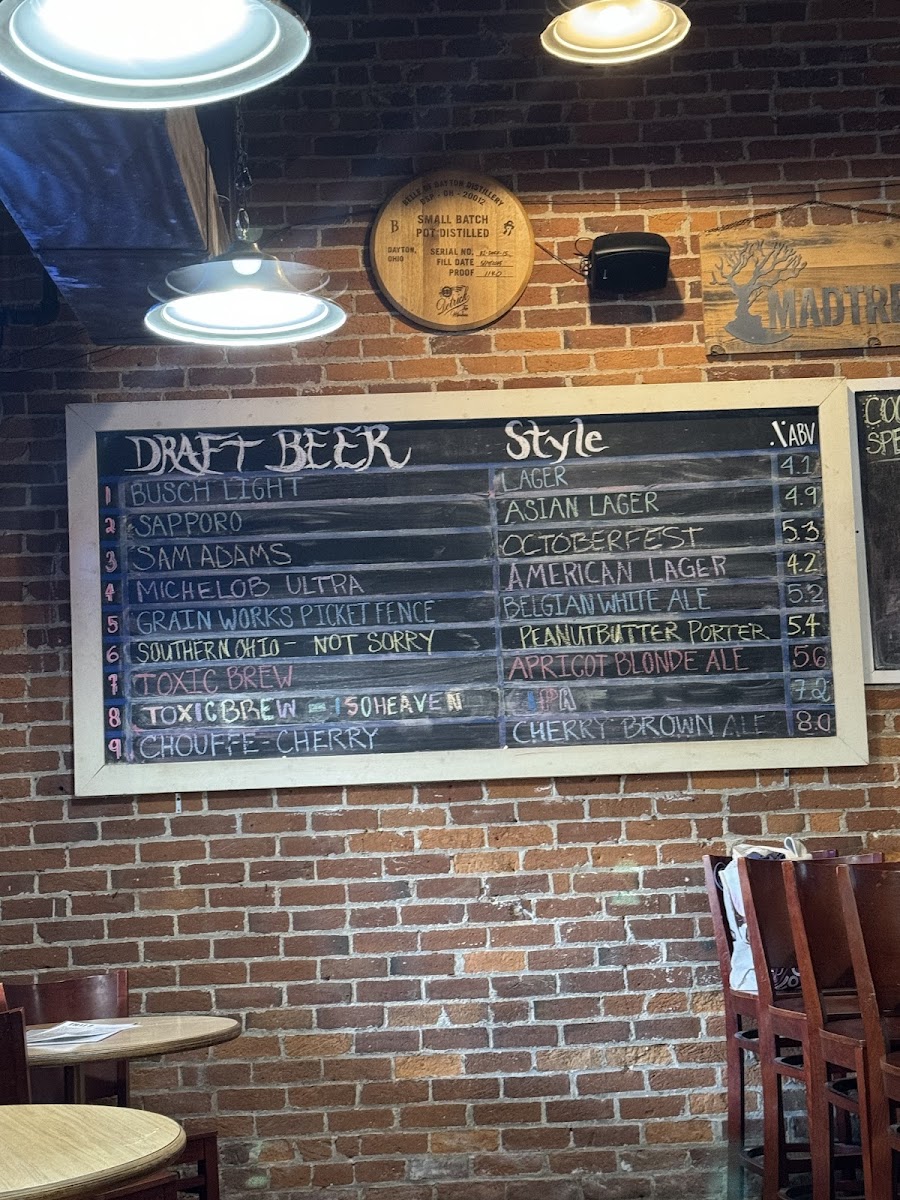 BELLE OF DAYTON DISTILLERY
DSP - OH - 20012
SMALL BATCH
POT DISTILLED
B
DAYTON, OHIO
SERIAL NO.
FILL DATE
PROOF
MADTRE
DRAFT BEER Style .\ ABV
1 BUSCH LIGHT LAGER 4.1
2 SAPPORO ASIAN LAGER 4.9
3 SAM ADAMS OCTOBERFEST 5.3
4 MICHELOB ULTRA AMERICAN LAGER 4.2
5 GRAIN WORKS PICKET FENCE BELGIAN WHITE ALE 5.2
6 SOUTHERN OHIO - NOT SORRY PEANUTBUTTER PORTER 5.4
7 TOXIC BREW APRICOT BLONDE ALE 5.6
8 TOXIC BREW - ISOHEAVEN IPA 7.2
9 CHOUFFE - CHERRY CHERRY BROWN ALE 8.0
COC
SPE